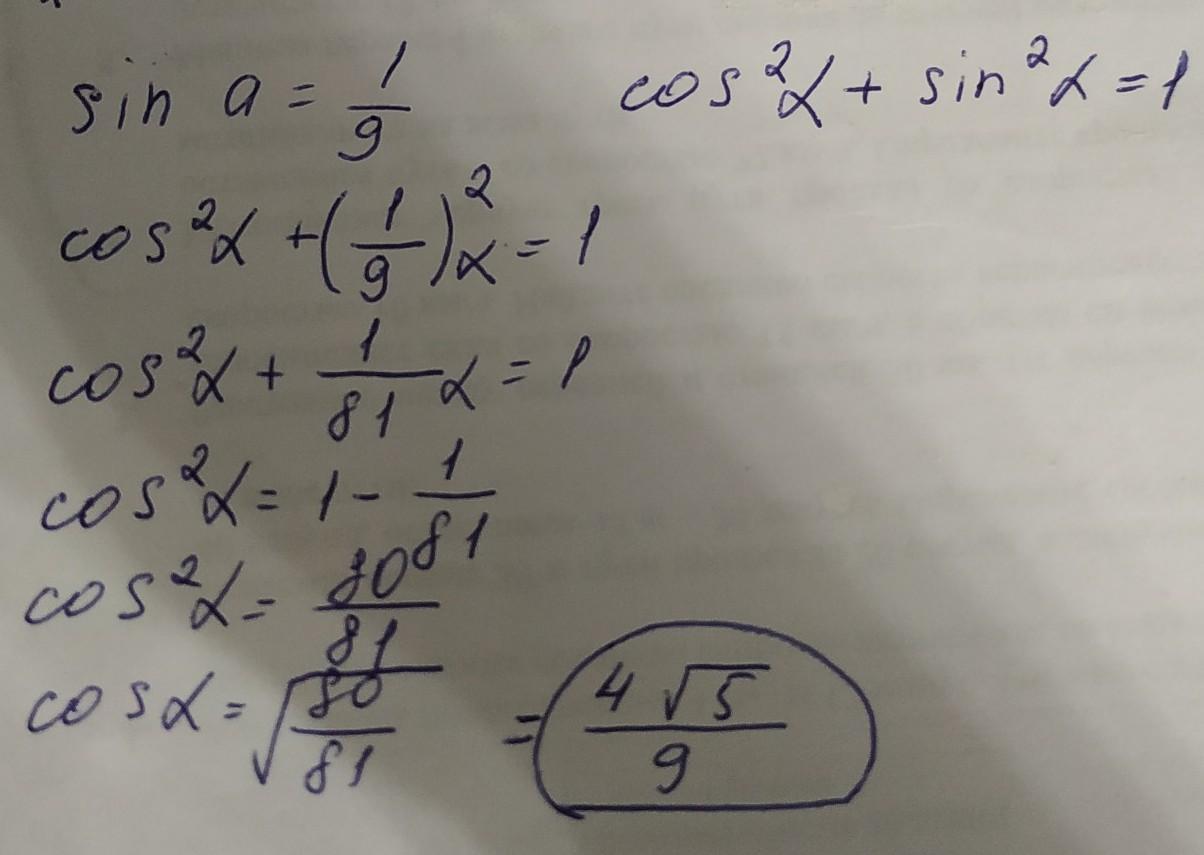 sin a = 1/9    cos²α + sin²α = 1
cos²α + (1/9)²α = 1
cos²α + 1/81 α = 1
cos²α = 1 - 1/81
cos²α = 80/81
cos α = √(80/81) = 4√5/9